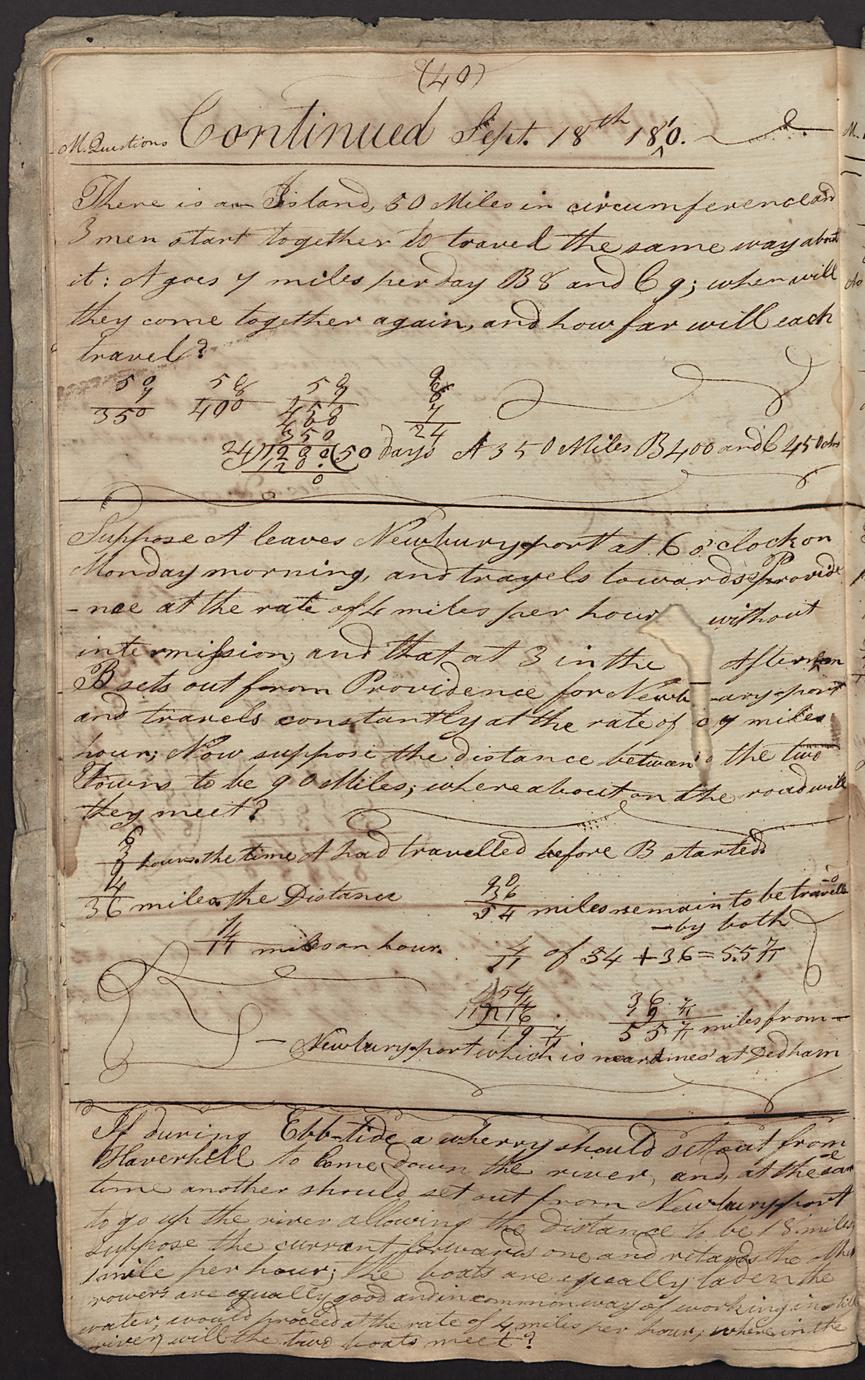 (40)
M. Questions Continued Sept. 18th 1810.
There is an Island, 50 Miles in circumference and
3 men start together to travel the same way about
it: A goes 7 miles per day B 8 and C 9; when will
they come together again, and how far will each
travel?
50 50 50 9
7 8 9 8
350 400 450 7
400 24
350
24)1200(50 days A 350 Miles B 400 and C 450
120
0
Suppose A leaves Newburyport at 6 o'clock on
Monday morning, and travels towards Provide
-nce at the rate of 4 miles per hour without
intermission, and that at 3 in the Afternoon
B sets out from Providence for Newburyport
and travels constantly at the rate of 7 miles
hour; Now suppose the distance between the two
Towns to be 90 Miles; whereabout on the road will
they meet?
6
3
9 hours the time A had travelled before B started.
4 90
36 miles the Distance 36
54 miles remain to be travell
-by both
7
4
11 miles an hour. 4/11 of 54 + 36 = 55 7/11
54
4 36
11)216 19 7/11
19 7 55 7/11 miles from-
- Newburyport which is at Dedham
If during Ebb-tide a wherry should set out from
Haverhill to come down the river, and, at the same
time another should set out from Newburyport
to go up the river allowing the distance to be 18 miles
suppose the currant forwards one and retards the other
1 mile per hour; the boats are equally laden the
rowers are equally good and in common way of working in still
water, would proceed at the rate of 4 miles per hour; where in the
river will the two boats meet?